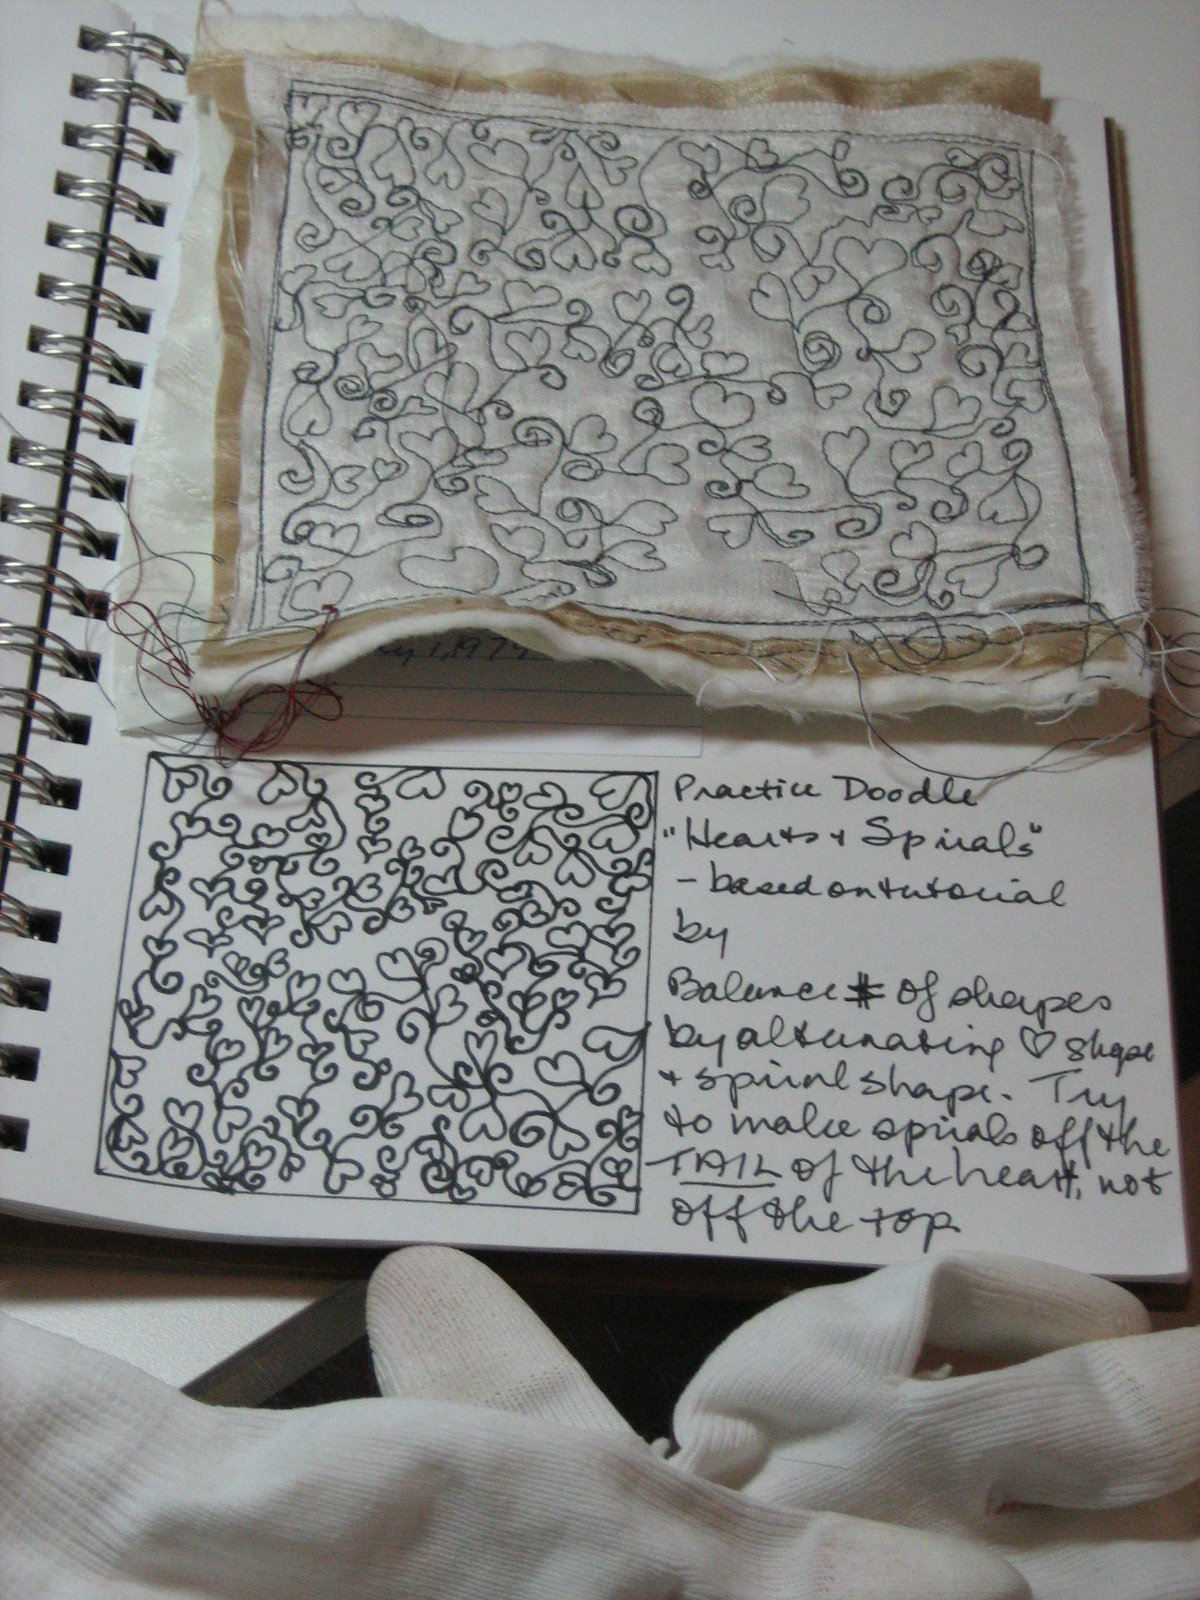 y 1, 1979
Practice Doodle
"Hearts + Spirals"
- based on tutorial
by
Balance # of shapes
by alternating ♡ shape
+ spiral shape. Try
to make spirals off the
TAIL of the heart, not
off the top